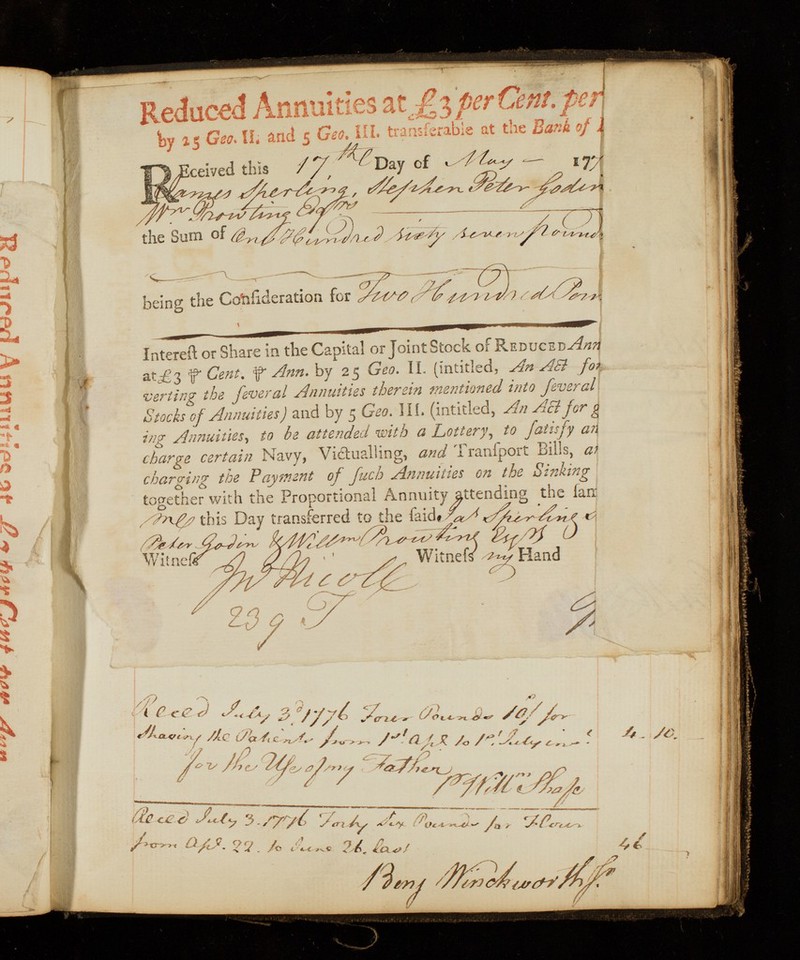 Reduced Annuities at £3 per Cent. per
by 25 Geo. II. and 5 Geo. III. transferable at the Bank of
REceived this 17th Day of May 177
James Sperling, Stephen Peter Godin
Wm Prowting Esqrs
the Sum of One Hundred sixty seven pounds
being the Conſideration for Two Hundred Poun
Intereſt or Share in the Capital or Joint Stock of REDUCED Ann
at £3 ⅌ Cent. ⅌ Ann. by 25 Geo. II. (intitled, An Act for
verting the ſeveral Annuities therein mentioned into ſeveral
Stocks of Annuities) and by 5 Geo. III. (intitled, An Act for g
ing Annuities, to be attended with a Lottery, to ſatisfy an
charge certain Navy, Victualling, and Tranſport Bills, a
charging the Payment of ſuch Annuities on the Sinking
together with the Proportional Annuity attending the ſam
me this Day transferred to the ſaid Jas Sperling S
Peter Godin & Willm Prowting Esqrs
Witneſs Witneſs my Hand
Jno Nicoll
239 T
Reced July 3d 1776 Four Pounds 10/ for
Shaving the Patients from 1st Apl to 1st July inst
for the Use of my Father
pr Willm Shafe
4 - 10.
Reced July 3. 1776 Forty Six Pounds for Flour
from Apl. 22. to June 26. last
46
Benj Winckworth Jr
Reduced Annuities at £3 per Cent per Ann